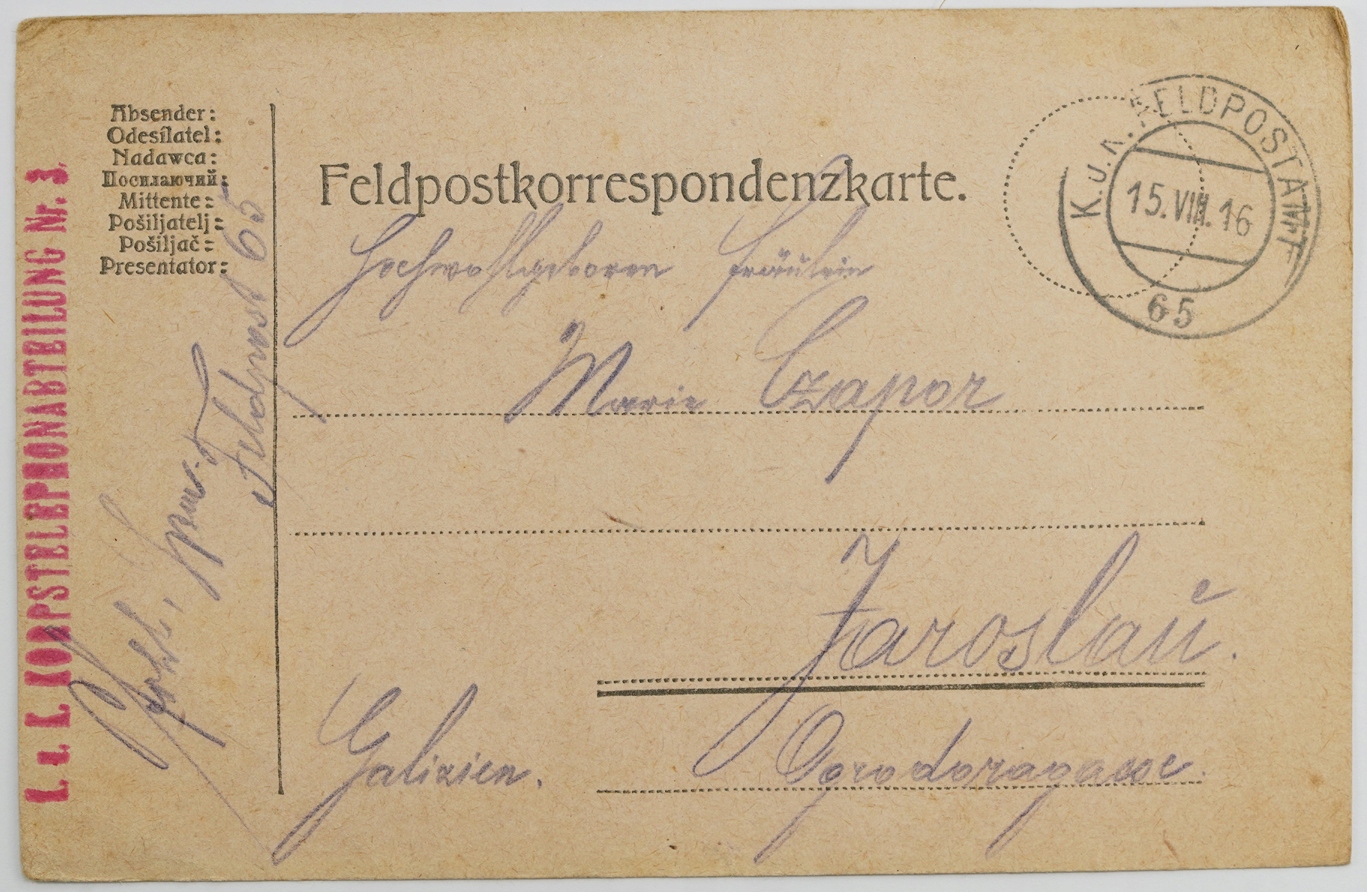 Absender:
Odesílatel:
Nadawca:
Посилаючий:
Mittente:
Pošiljatelj:
Pošiljač:
Presentator:
K. u. K. KORPSTELEPHONABTEILUNG Nr. 3.
Feldpost 65
Feldpostkorrespondenzkarte.
K. u. K. FELDPOSTAMT
15. VIII. 16
65
Hochwohlgeboren Fräulein
Marie Czapor
Jaroslaŭ.
Galizien.